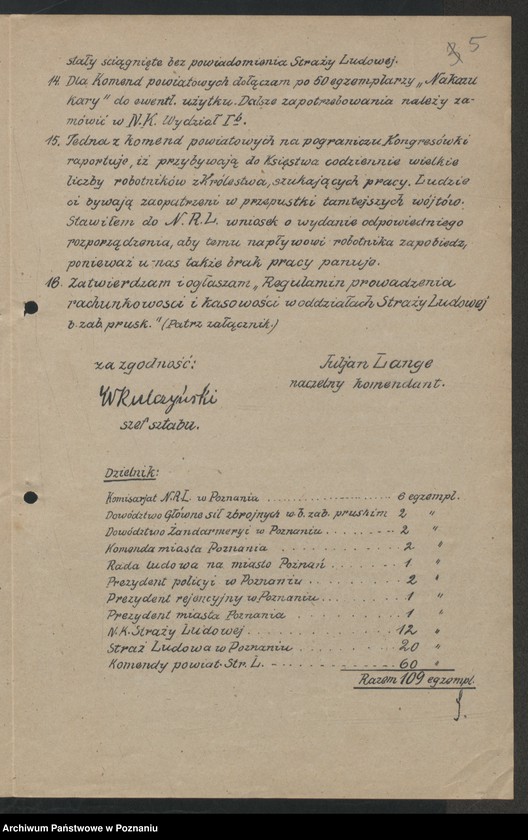 5
stały sciągnięte bez powiadomienia Straży Ludowej.
14. Dla Komend powiatowych dołączam po 50 egzemplarzy „Nakazu
Kary" do ewentl. użytku. Dalsze zapotrzebowania należy za-
mówić w N.K. Wydział Ib.
15. Jedna z komend powiatowych na pograniczu Kongresówki
raportuje, iż przybywają do Księstwa codziennie wielkie
liczby robotników z Królestwa, szukających pracy. Ludzie
ci bywają zaopatrzeni w przepustki tamtejszych wójtów.
Stawiłem do N.R.L. wniosek o wydanie odpowiedniego
rozporządzenia, aby temu napływowi robotnika zapobiedz,
ponieważ u nas także brak pracy panuje.
16. Zatwierdzam i ogłaszam „Regulamin prowadzenia
rachunkowosci i kasowości w oddziałach Straży Ludowej
b. zab. prusk." (Patrz załącznik.)
za zgodność:
Juljan Lange
naczelny komendant.
WKulczyński
szef sztabu.
Dzielnik:
Komisarjat N.R.L. w Poznaniu .......... 6 egzempl.
Dowództwo Główne sił zbrojnych w b. zab. pruskim 2 "
Dowództwo Żandarmeryi w Poznaniu ........ 2 "
Komenda miasta Poznania .......... 2 "
Rada ludowa na miasto Poznań ......... 1 "
Prezydent policyi w Poznaniu .......... 2 "
Prezydent rejencyjny w Poznaniu ........ 1 "
Prezydent miasta Poznania .......... 1 "
N.K. Straży Ludowej .............. 12 "
Straż Ludowa w Poznaniu .......... 20 "
Komendy powiat. Str. L. - .......... 60 "
Razem 109 egzempl.
Archiwum Państwowe w Poznaniu